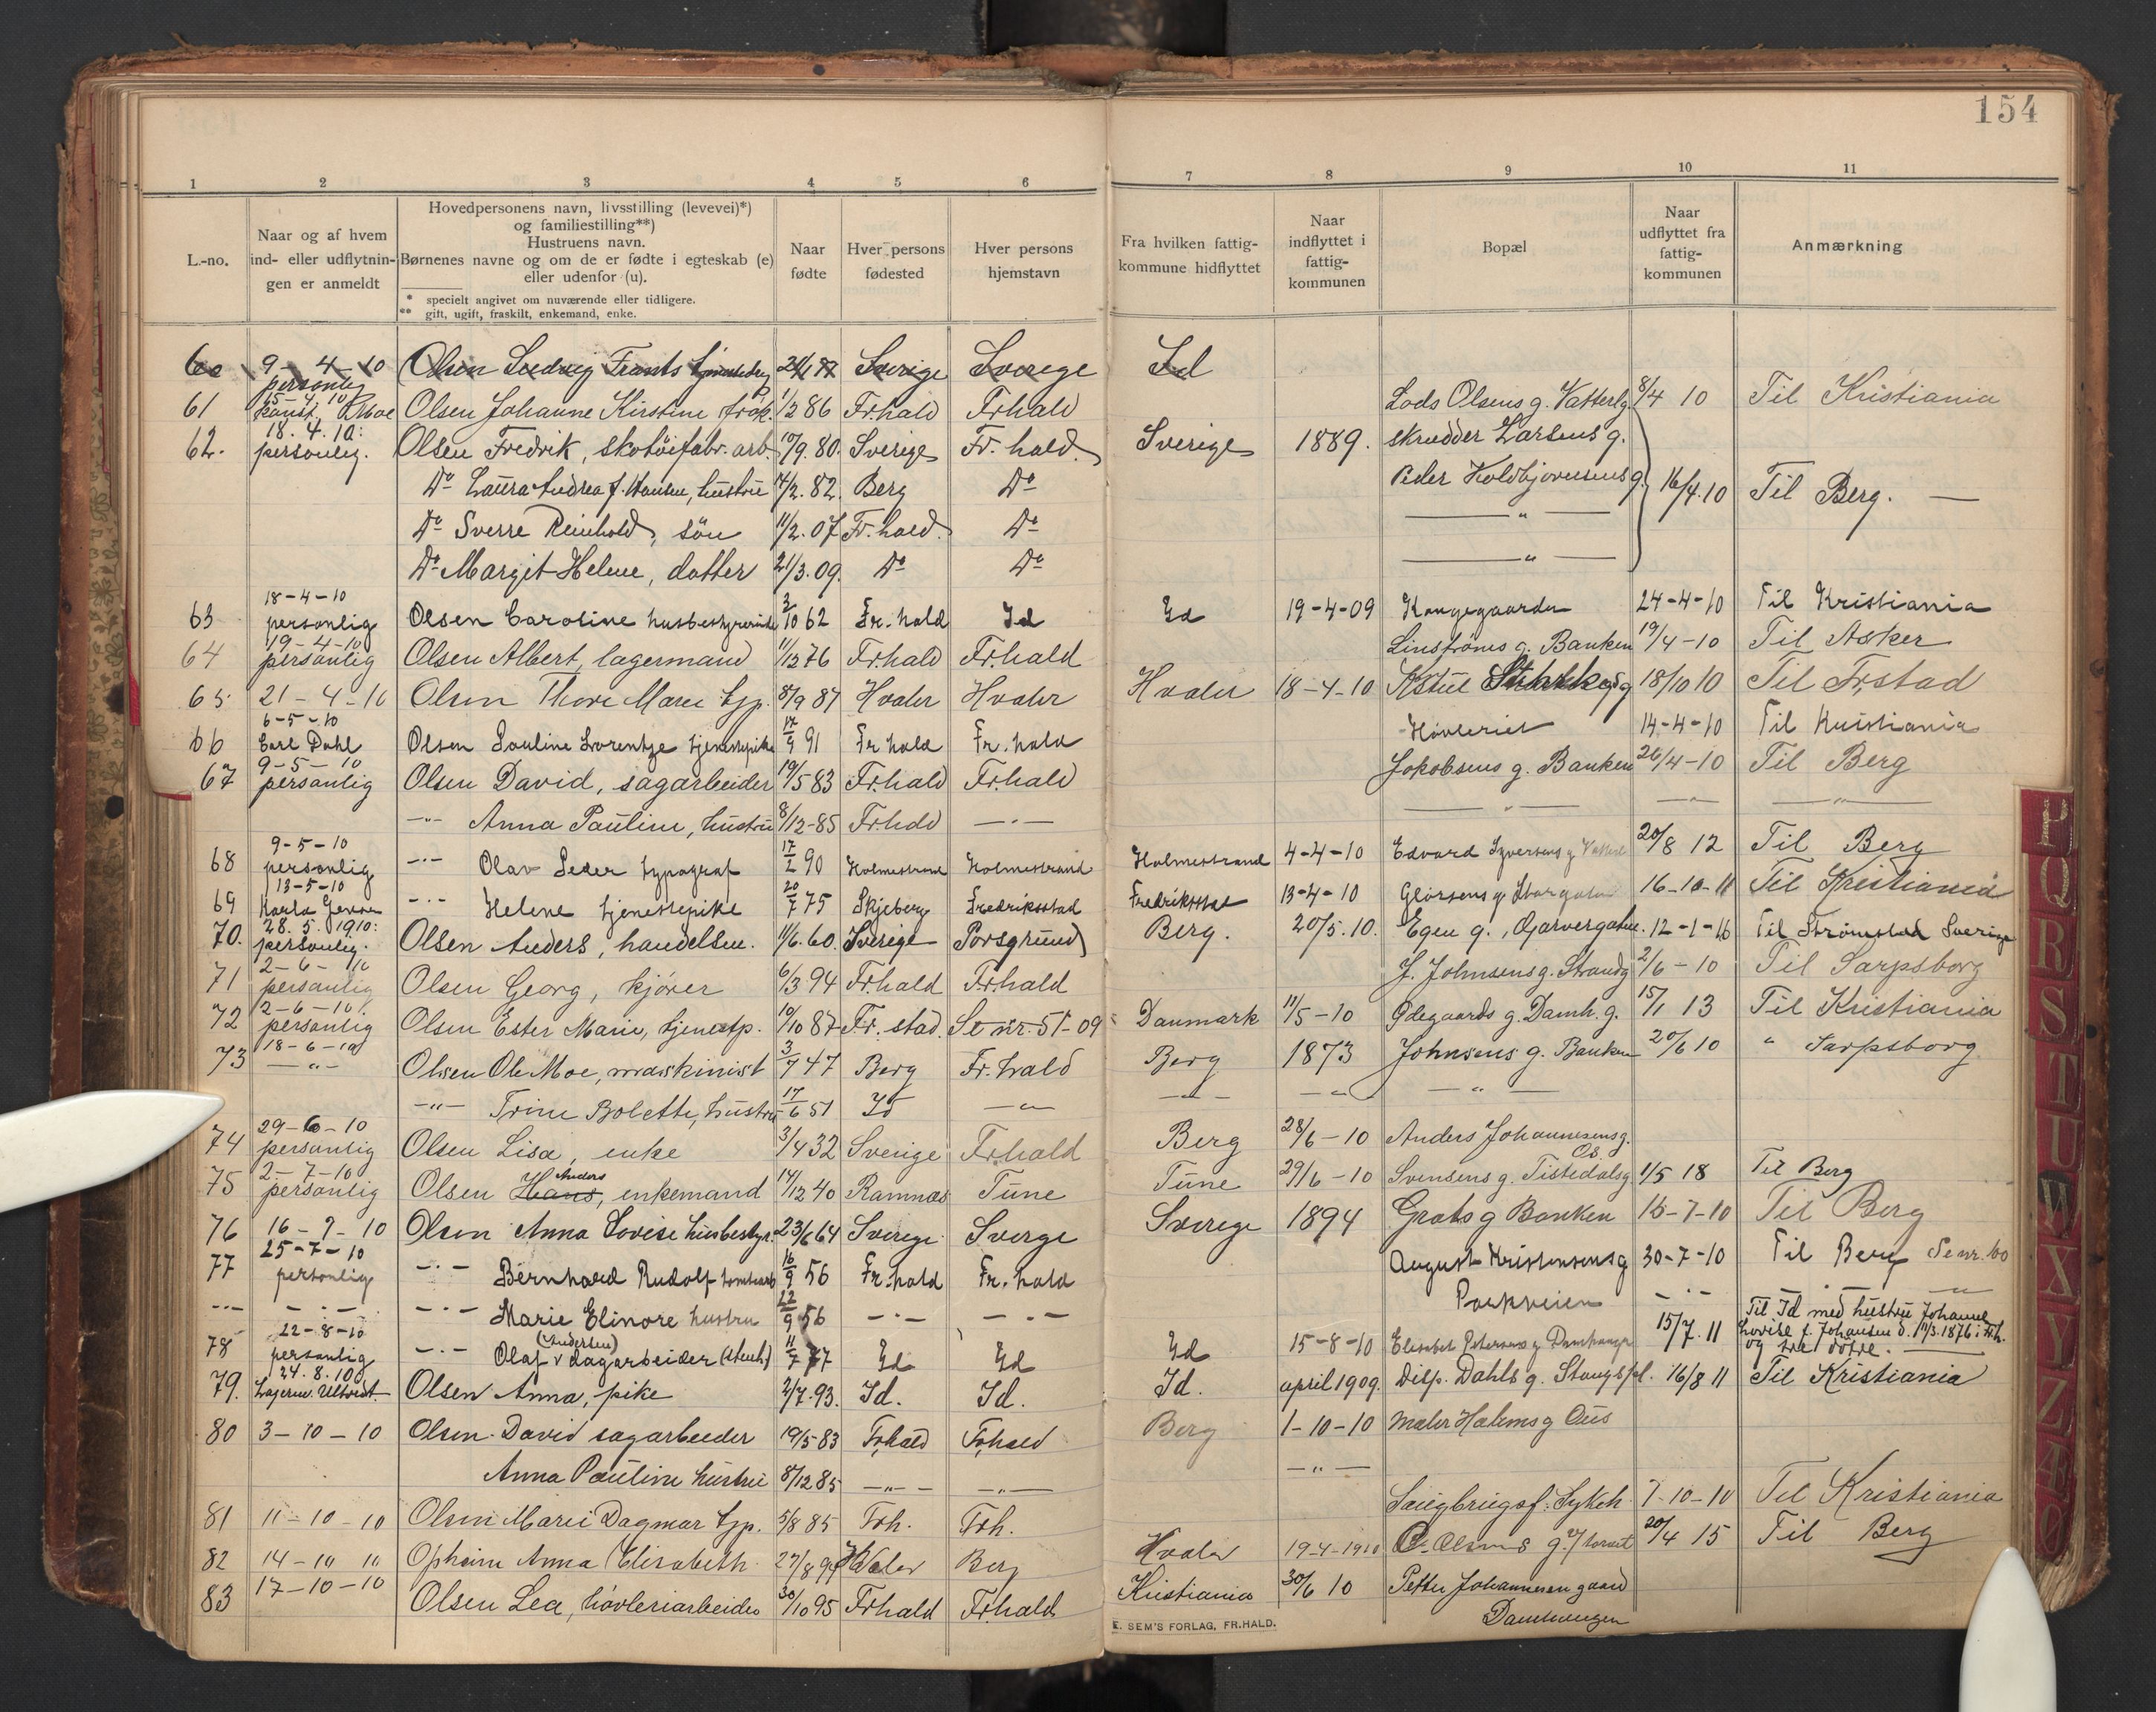 154
1 2 3 4 5 6 7 8 9 10 11
L.-no.
Naar og af hvem ind- eller udflytnin- gen er anmeldt
Hovedpersonens navn, livsstilling (levevei)*)
og familiestilling**)
Hustruens navn.
Børnenes navne og om de er fødte i egteskab (e)
eller udenfor (u).
* specielt angivet om nuværende eller tidligere.
** gift, ugift, fraskilt, enkemand, enke.
Naar fødte
Hver persons fødested
Hver persons hjemstavn
Fra hvilken fattig- kommune hidflyttet
Naar indflyttet i fattig- kommunen
Bopæl
Naar udflyttet fra fattig- kommunen
Anmærkning
60 9-4-10 personlig Olsen Ludvig Frants Sverige Sverige Id
61 15-4-10 Olsen Johanne Kirstine frøk. 1/2 86 Fr.hald Fr.hald Lods Olsens g. 8/4 10 Til Kristiania
62. 18.4.10: personlig. Olsen Fredrik, skotøifabr. arb. 10/9.80. Sverige Fr.hald. Sverige 1889. skrædder Larsens g.
Do Laura Andrea f. Hansen, hustru 14/2.82. Berg Do Peder Holdbjørnsens g. 16/4.10 Til Berg. —
Do Sverre Reinhold, søn 11/2.07 Fr.hald. Do — " —
Do Margit Helene, datter 21/3.09. Do Do — " —
63 18-4-10 personlig Olsen Caroline husbestyrerinde 2/10 62 Fr.hald Id Id 19-4-09 Kongegaarden 24-4-10 Til Kristiania
64 19-4-10 personlig Olsen Albert, lagermand 11/12 76 Fr.hald Fr.hald Linstrøms g. Banken 19/4-10 Til Asker
65 21-4-10 Olsen Thora Marie tjp. 8/9 87 Hvaler Hvaler Hvaler 18-4-10 18/10 10 Til Fr.stad
66 6-5-10 Carl Dahl Olsen Pauline Lorentze tjenestepike 17/9 91 Fr hald Fr.hald Høvleriet 14-4-10 Til Kristiania
67 9-5-10 personlig Olsen David, sagarbeider 19/5 83 Fr.hald Fr.hald Jakobsens g. Banken 26/4-10 Til Berg
-"- Anna Pauline, hustru 8/12-85 Fr.hald -"- -"- -"- -"-
68 9-5-10 personlig -"- Olav Peder typograf 17/2 90 Holmestrand Holmestrand Holmestrand 4-4-10 Edvard Syversens g 20/8 12 Til Berg
69 13-5-10 Karla Jensen -"- Helene tjenestepike 20/7 75 Skjeberg Fredriksstad Fredriksstad 13-4-10 16-10-11 Til Kristiania
70. 28.5.1910: personlig. Olsen Anders, handelsm. 11/6.60. Sverige Porsgrund Berg. 20/5.10. Egen g., Garvergaten. 12-1-16 Til Strømstad Sverige
71 2-6-10 personlig Olsen Georg, kjører 6/3 94 Fr.hald Fr.hald J. Johnsens g. Strandg 2/6-10 Til Sarpsborg
72 2-6-10. personlig Olsen Ester Marie, tjenestp. 10/10 87 Fr.stad. Se nr. 51-09 Danmark 11/5-10 Ødegaards g. Damh. g. 15/1 13 Til Kristiania
73 18-6-10 -"- Olsen Ole Moe, maskinist 3/7 47 Berg Fr.hald Berg 1873 Johnsens g. Banken 20/6 10 " Sarpsborg
-"- Trine Bolette, hustru 17/6 51 Id -"- -"- -"- -"-
74 29-6-10 personlig Olsen Lisa, enke 3/4 32 Sverige Fr.hald Berg 28/6-10 Anders Johannesens g. Os.
75 2-7-10 personlig Olsen Hans, Anders enkemand 14/12 40 Ramnæs Tune Tune 29/6-10 Svensens g. Tistedalsg 1/5 18 Til Berg
76 16-7-10 Olsen Anna Lovise husbestyr. 23/6 64 Sverige Sverge Sverige 1894 Grats g Banken 15-7-10 Til Berg
77 25-7-10 personlig -"- Bernhard Rudolf 16/9 56 Fr.hald Fr.hald August Kristensens g 30-7-10 Til Berg Se nr. 60
-"- -"- -"- Marie Elinore hustru 22/9 56 -"- -"- Parkveien -"- -"-
78 22-8-10 personlig -"- Olaf (Andersen) dagarbeider (stenh.) 11/7 77 Id Id Id 15-8-10 Elisabet Petersens g 15/7.11 Til Id med hustru Johanne Lovise f. Johansen d. 11/3.1876 i Fr.h. og tre døtre.
79. 24.8.10 Lagerm. Ultvedt. Olsen Anna, pike 2/7.93. Id. Id. Id. april 1909. Disp. Dahls g. Stangspl. 16/8 11 Til Kristiania
80 3-10-10 Olsen David sagarbeider 19/5 83 Fr.hald Fr.hald Berg 1-10-10 Maler Holems g Øus
Anna Pauline hustru 8/12 85 -"- -"- -"-
81 11-10-10 Olsen Marie Dagmar tjp. 5/8 85 Frh. Frh. Sykeh. 7-10-10 Til Kristiania
82 14-10 10 Opheim Anna Elisabeth 27/8 Hvaler Berg Hvaler 19-4-1910 O. Olsens g. v/ torvet 20/4 15 Til Berg
83 17-10-10 Olsen Lea, høvleriarbeider 30/10 95 Fr.hald Fr.hald Kristiania 30/6 10 Petter Johannesen gaard Damhaugen
E. SEM'S FORLAG, FR.HALD.
P
Q
R
S
T
U
W
X
Y
Z
Æ
Ø